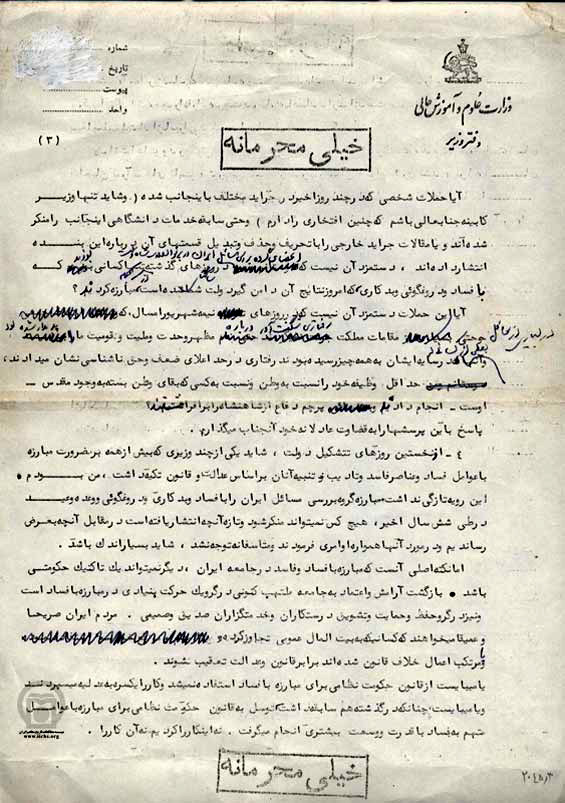 شماره
تاریخ
پیوست
واحد
وزارت علوم و آموزش عالی
دفتر وزیر
(۳)
خیلی محرمانه
آیا حملات شخصی که در چند روز اخیر در جراید مختلف باینجانب شده (و شاید تنها وزیر
کابینه جنابعالی باشم که چنین افتخاری را دارم) و حتی سابقه خدمات دانشگاهی اینجانب را منکر
شده‌اند و یا مقالات جراید خارجی را با تحریف و حذف و تبدیل قسمتهای آن درباره این بنده
انتشار داده‌اند، دستمزد آن نیست که در روزهای گذشته با کمانی که
با فساد و دروغگوئی و بدکاری، که امروز نتایج آن دامن گیر دولت شما شده است، مبارزه کرد؟
آیا این حملات دستمزد آن نیست که در روزهای نیمه شهریور امسال، که
و حتی مقامات مملکت درباره مظهر وحدت و ملیت و قومیت ما
و آنها که رسایه ایشان به همه چیز رسیده بودند رفتاری در حد اعلای ضعف و حق ناشناسی نشان میدادند،
حداقل وظیفه خود را نسبت به وطن و نسبت به کسی که بقای وطن بسته به وجود مقدس
اوست - انجام داد و پرچم دفاع از شاهنشاه را برافراشت
پاسخ باین پرسشها را به قضاوت عادلانه خود آنجناب میگذارم.
۴ - از نخستین روزهای تشکیل دولت، شاید یکی از چند وزیری که بیش از همه بر ضرورت مبارزه
با عوامل فساد و عناصر فاسد و تادیب و تنبیه آنان بر اساس عدالت و قانون تکیه داشت، من بودم.
این رویه تازگی نداشت، مبارزه گروه بررسی مسائل ایران را با فساد و بدکاری و دروغگوئی و وعده و وعید
در طی شش سال اخیر، هیچ کس نمیتواند منکر شود و تازه آنچه انتشار یافته است در مقابل آنچه بعرض
رساندیم و در مورد آنها همواره اوامری فرمودند و متاسفانه توجه نشد، شاید بسیار اندک باشد.
اما نکته اصلی آنست که مبارزه با فساد و فاسد در جامعه ایران، دیگر نمیتواند یک تاکتیک حکومتی
باشد. بازگشت آرامش و اعتماد به جامعه ملتهب کنونی در گرو یک حرکت بنیادی در مبارزه با فساد است
و نیز در گرو حفظ و حمایت و تشویق درستکاران و خدمتگزاران صدیق و صمیمی. مردم ایران صریحا
و عمیقا میخواهند که کسانیکه به بیت المال عمومی تجاوز کرده
و یا مرتکب اعمال خلاف قانون شده‌اند برابر قانون و عدالت تعقیب شوند.
یا میبایست از قانون حکومت نظامی برای مبارزه با فساد استفاده نمیشد و کار را یکسره به عدلیه میسپردند
و یا میبایست، چنانکه در گذشته هم سابقه داشت، توسل به قانون حکومت نظامی برای مبارزه با عوامل
متهم به فساد با قدرت و وسعت بیشتری انجام میگرفت. نه اینکار را کردیم نه آن کار را.
خیلی محرمانه
www.iichs.org